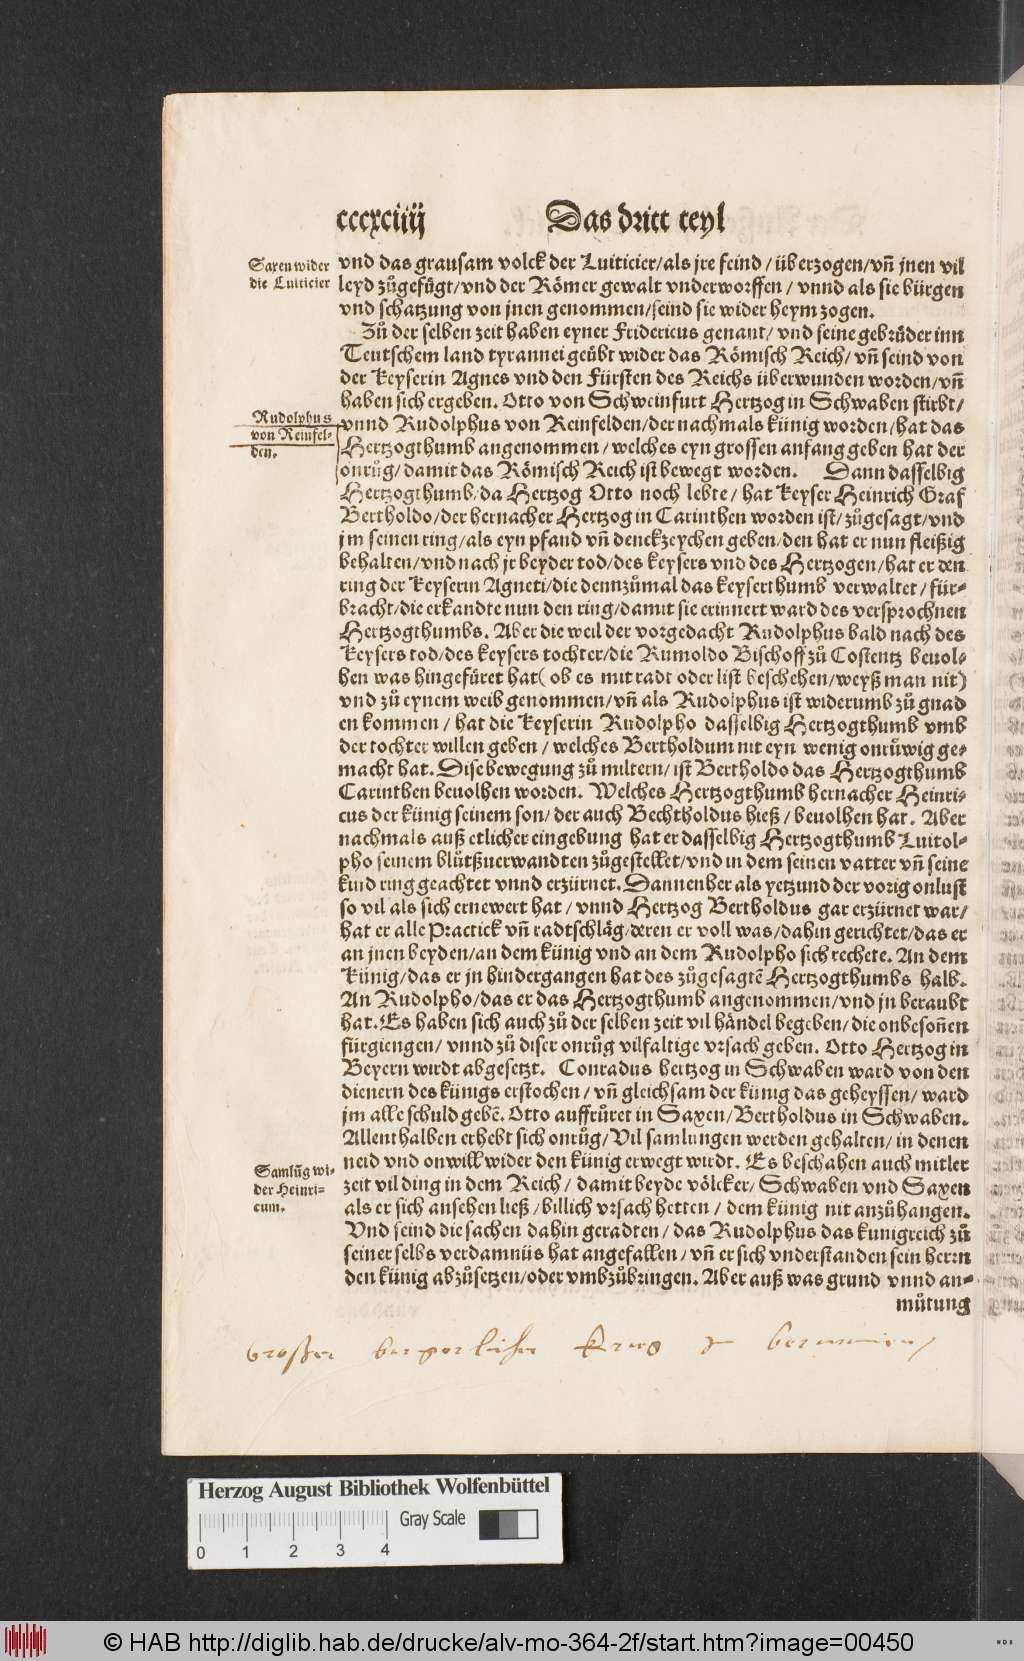 cccxciiij Das dritt teyl
Saxen wider
die Luiticier
vnd das grausam volck der Luiticier/als jre feind/überzogen/vñ jnen vil
leyd zůgefügt/vnd der Römer gewalt vnderworffen/vnnd als sie bürgen
vnd schatzung von jnen genommen/seind sie wider heym zogen.
Zů der selben zeit haben eyner Fridericus genant/vnd seine gebrůder inn
Teutschem land tyrannei geübt wider das Römisch Reich/vñ seind von
der Keyserin Agnes vnd den Fürsten des Reichs überwunden worden/vñ
haben sich ergeben. Otto von Schweinfurt Hertzog in Schwaben stirbt/
Rudolphus
von Reinfel-
den.
vnnd Rudolphus von Reinfelden/der nachmals künig worden/hat das
Hertzogthumb angenommen/welches eyn grossen anfang geben hat der
onrůg/damit das Römisch Reich ist bewegt worden. Dann dasselbig
Hertzogthumb/da Hertzog Otto noch lebte/hat Keyser Heinrich Graf
Bertholdo/der hernacher Hertzog in Carinthen worden ist/zůgesagt/vnd
jm seinen ring/als eyn pfand vñ denckzeychen geben/den hat er nun fleißig
behalten/vnd nach jr beyder tod/des keysers vnd des Hertzogen/hat er den
ring der Keyserin Agneti/die dennzůmal das keyserthumb verwaltet/für-
bracht/die erkandte nun den ring/damit sie erinnert ward des versprochnen
Hertzogthumbs. Aber die weil der vorgedacht Rudolphus bald nach des
Keysers tod/des keysers tochter/die Rumoldo Bischoff zů Costentz beuol-
hen was hingefüret hat(ob es mit radt oder list beschehen/weyß man nit)
vnd zů eynem weib genommen/vñ als Rudolphus ist widerumb zů gnad
en kommen/hat die Keyserin Rudolpho dasselbig Hertzogthumb vmb
der tochter willen geben/welches Bertholdum nit eyn wenig onrůwig ge-
macht hat. Dise bewegung zů miltern/ist Bertholdo das Hertzogthumb
Carinthen beuolhen worden. Welches Hertzogthumb hernacher Heinri-
cus der künig seinem son/der auch Bechtholdus hieß/beuolhen hat. Aber
nachmals auß etlicher eingebung hat er dasselbig Hertzogthumb Luitol-
pho seinem blůtßuerwandten zůgestellet/vnd in dem seinen vatter vñ seine
kind ring geachtet vnnd erzürnet. Dannenher als yetzund der vorig onlust
so vil als sich ernewert hat/vnnd Hertzog Bertholdus gar erzürnet war/
hat er alle Practick vñ radtschläg/deren er voll was/dahin gerichtet/das er
an jnen beyden/an dem künig vnd an dem Rudolpho sich rechete. An dem
Künig/das er jn hindergangen hat des zůgesagtē Hertzogthumbs halb.
An Rudolpho/das er das Hertzogthumb angenommen/vnd jn beraubt
hat. Es haben sich auch zů der selben zeit vil händel begeben/die onbesoñen
fürgiengen/vnnd zů diser onrůg vilfaltige vrsach geben. Otto Hertzog in
Beyern wirdt abgesetzt. Conradus hertzog in Schwaben ward von den
dienern des künigs erstochen/vñ gleichsam der künig das geheyssen/ward
jm alle schuld gebē. Otto auffrůret in Saxen/Bertholdus in Schwaben.
Allenthalben erhebt sich onrůg/Vil samlungen werden gehalten/in denen
Samlũg wi-
der Heinri-
cum.
neid vnd onwill wider den künig erwegt wirdt. Es beschahen auch mitler
zeit vil ding in dem Reich/damit beyde völcker/Schwaben vnd Saxen
als er sich ansehen ließ/billich vrsach hetten/dem künig nit anzůhangen.
Vnd seind die sachen dahin geradten/das Rudolphus das kunigreich zů
seiner selbs verdamniis hat angefallen/vñ er sich vnderstanden sein herrn
den künig abzůsetzen/oder vmbzůbringen. Aber auß was grund vnnd an-
můtung
großer burgerlicher Krieg
Herzog August Bibliothek Wolfenbüttel
Gray Scale
0 1 2 3 4
© HAB http://diglib.hab.de/drucke/alv-mo-364-2f/start.htm?image=00450